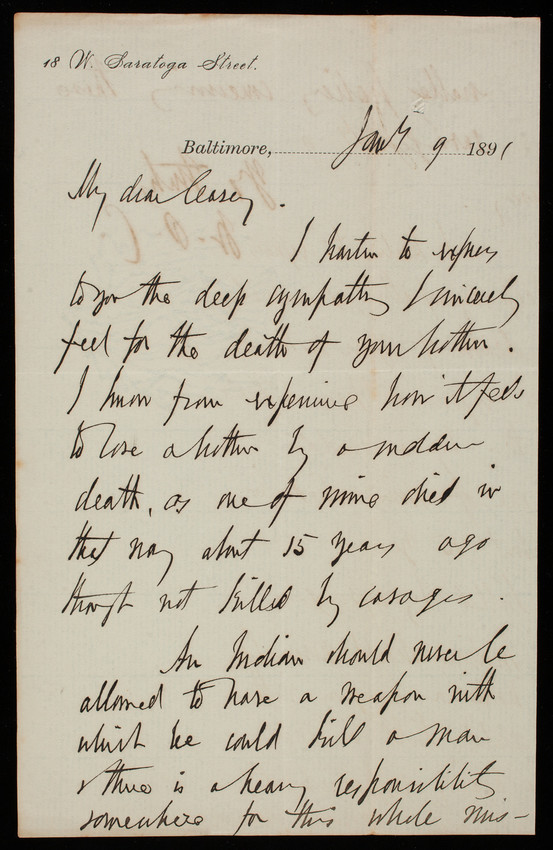 18 W. Saratoga Street.
Baltimore, Jany 9 1891
My dear Casey.
I hasten to express
to you the deep sympathy I sincerely
feel for the death of your brother.
I know from experience how it feels
to lose a brother by a sudden
death, as one of mine died in
that way about 15 years ago
though not killed by savages.
An Indian should never be
allowed to have a weapon with
which he could kill a man
& there is a heavy responsibility
somewhere for this whole mis-